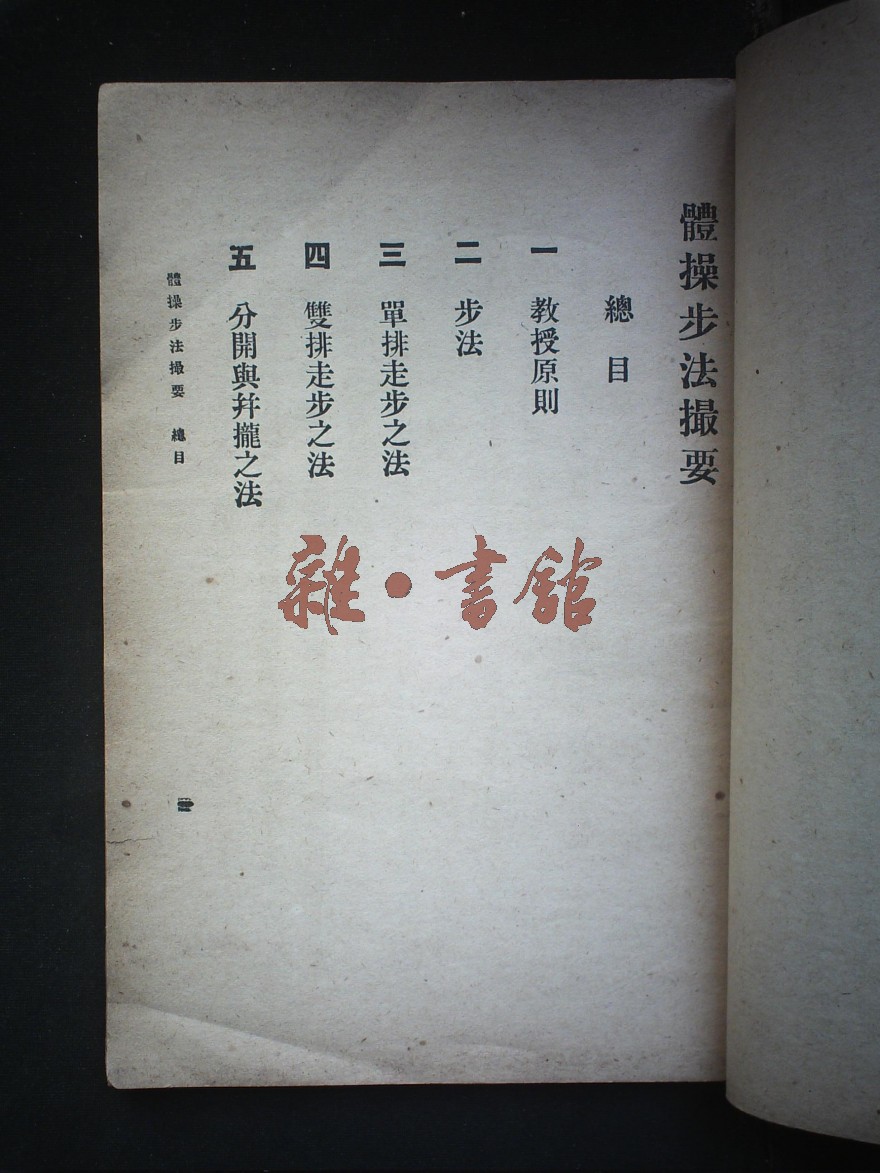 體操步法撮要
總目
一 教授原則
二 步法
三 單排走步之法
四 雙排走步之法
五 分開與幷攏之法
體操步法撮要 總目
雜·書館